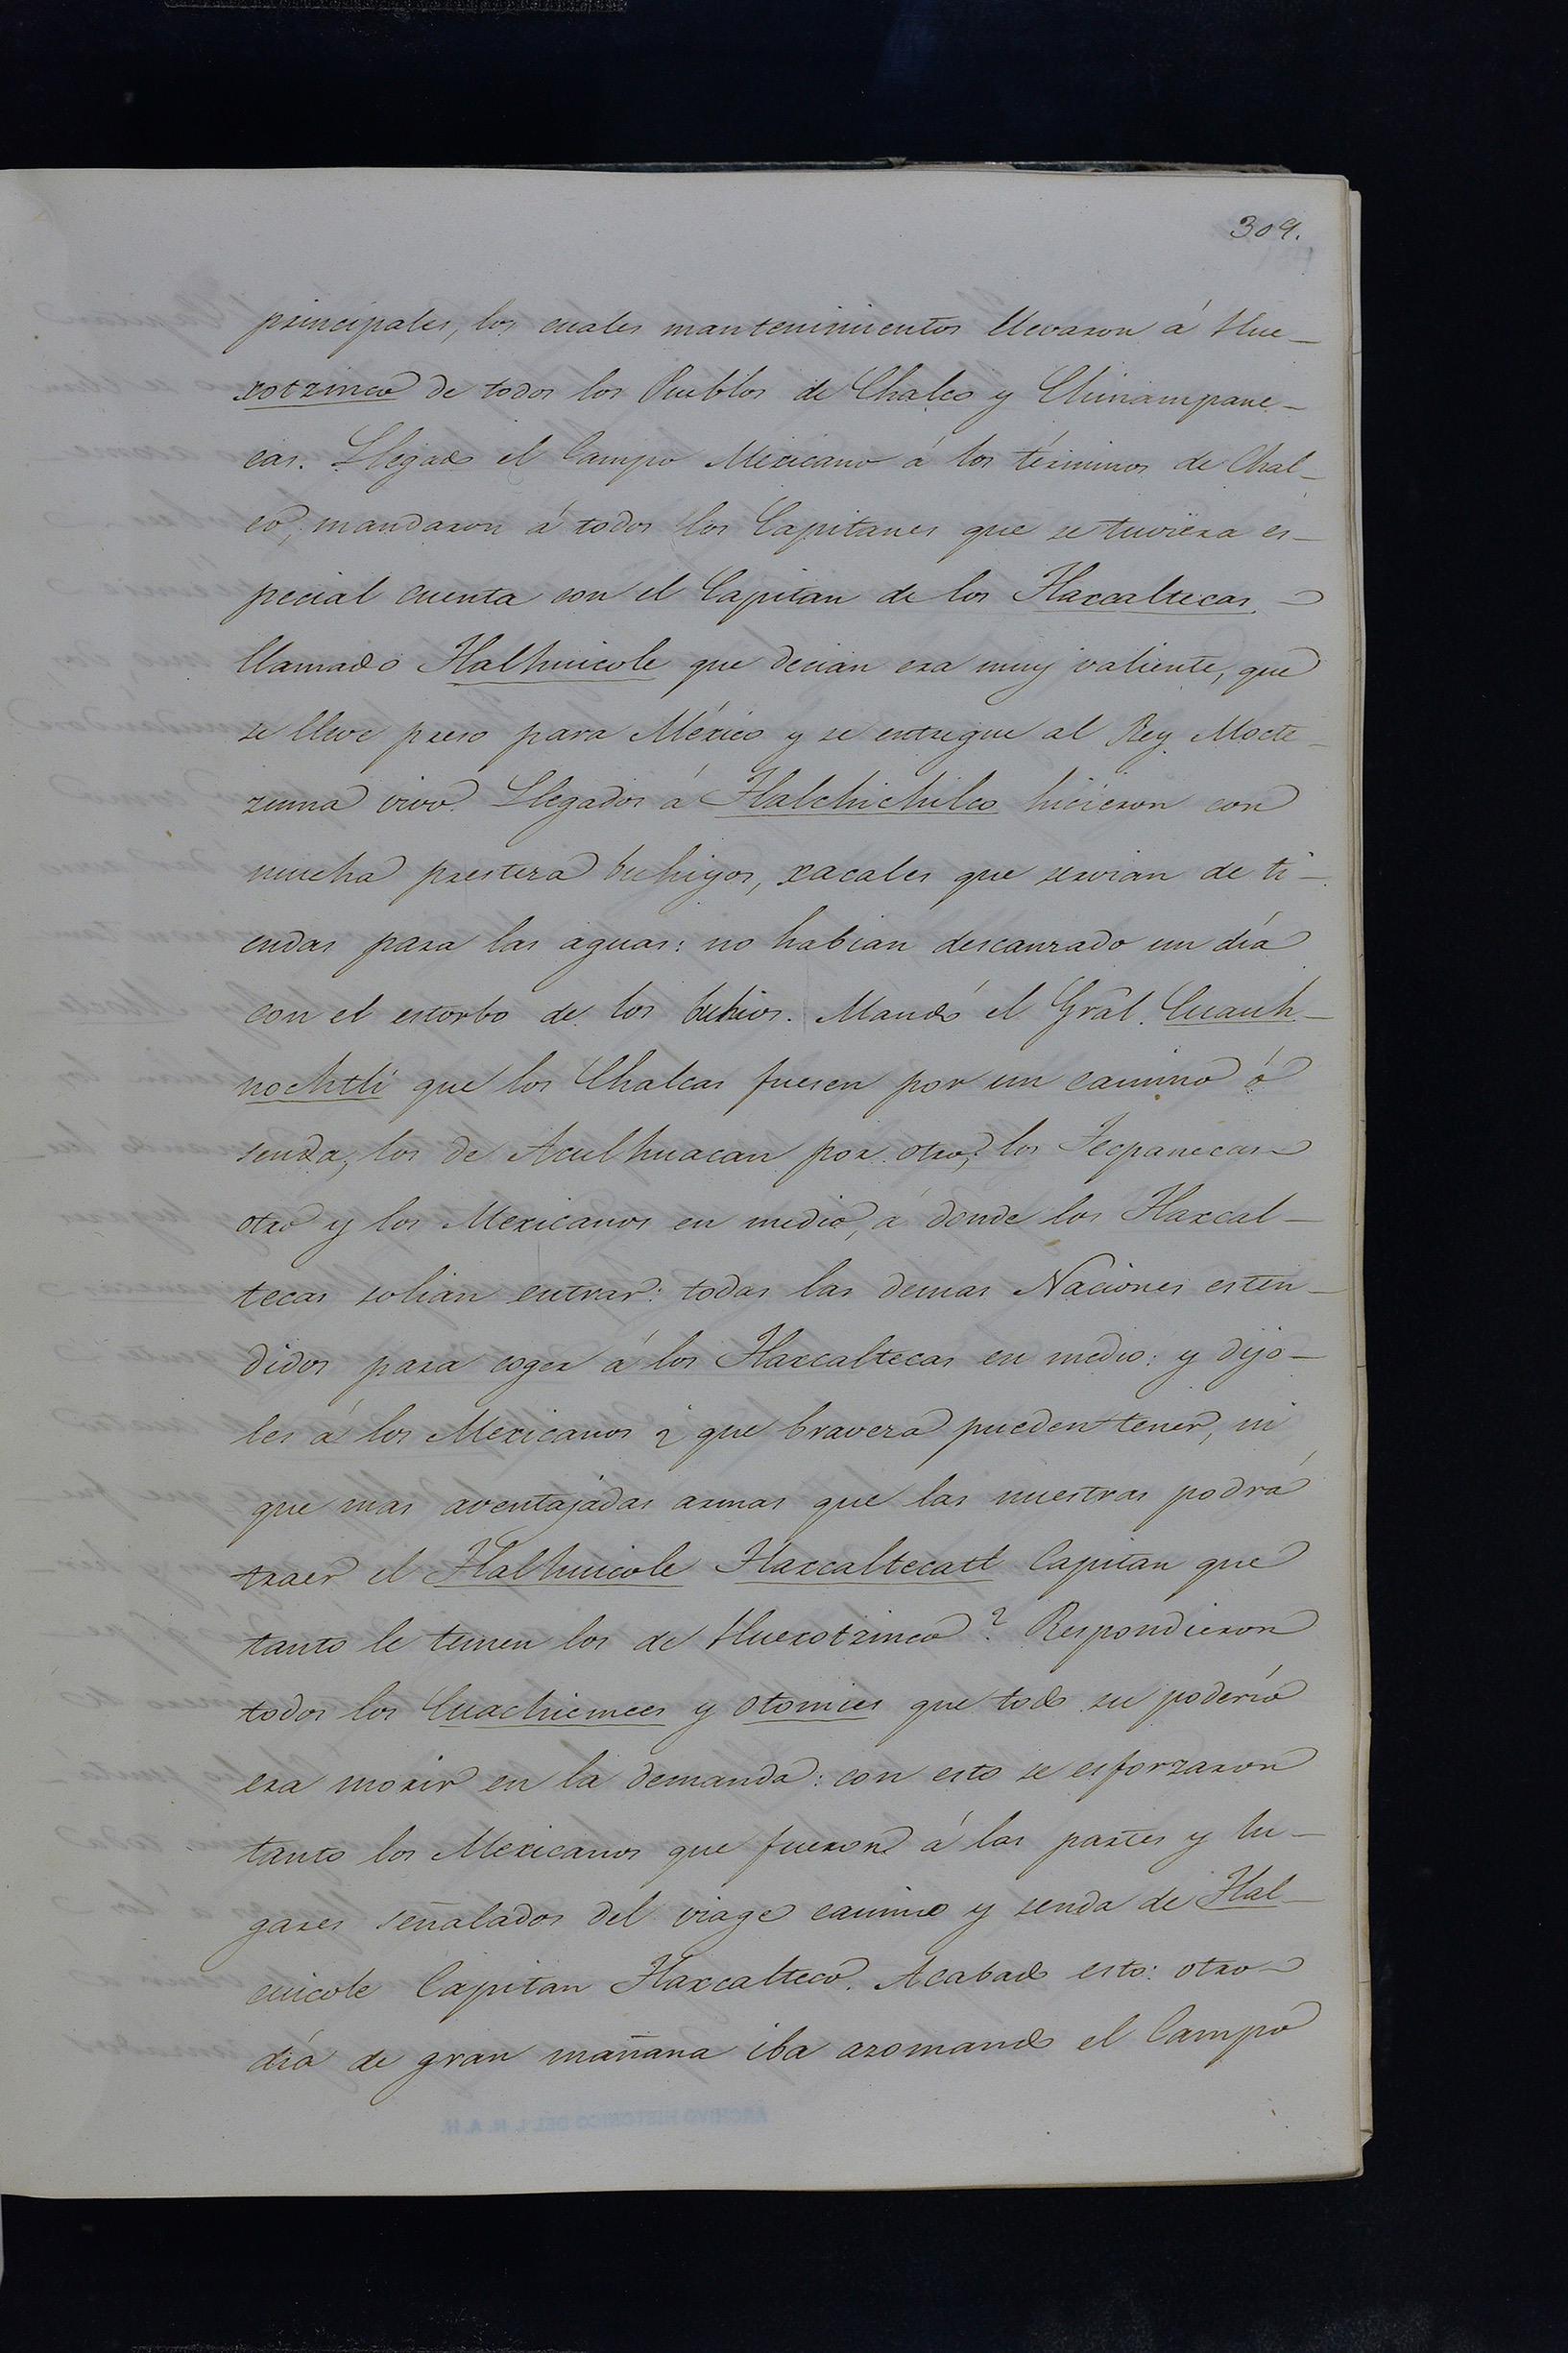 309.
principales, los cuales mantenimientos llevaron á Hue-
xotzinco de todos los Pueblos de Chalco y Chinampane-
cas. Llegado el Campo Mexicano á los términos de Chal-
co, mandaron á todos los Capitanes que se tuviera es-
pecial cuenta con el Capitan de los Tlaxcaltecas,
llamado Tlalhuicole que decian era muy valiente, que
se lleve preso para México y se entregue al Rey Mocte-
zuma vivo. Llegados á Tlalchichilco hicieron con
mucha presteza buhiyos, xacales que servian de ti-
endas para las aguas: no habian descanzado un día
con el estorbo de los buhios. Mandó el Grâl. Cuauh-
nochtli que los Chalcas fuesen por un camino ó
senda, los de Aculhuacan por otro, los Tecpanecas
otro y los Mexicanos en medio, á donde los Tlaxcal-
tecas solian entrar: todas las demas Naciones esten-
didos para coger á los Tlaxcaltecas en medio: y dijo-
les á los Mexicanos ¿ que braveza pueden tener, ni
que mas aventajadas armas que las nuestras podrá
traer el Tlalhuicole Tlaxcaltecatl Capitan que
tanto le temen los de Huexotzinco? Respondieron
todos los Cuachicmees y Otomies que todo su poderío
era morir en la demanda: con esto se esforzaron
tanto los Mexicanos que fueron á las partes y lu-
gares señalados del viage camino y senda de Tlal-
cuicole Capitan Tlaxcalteco. Acabado esto: otro
día de gran mañana iba azomando el Campo
ARCHIVO HISTORICO DEL I. N. A. H.